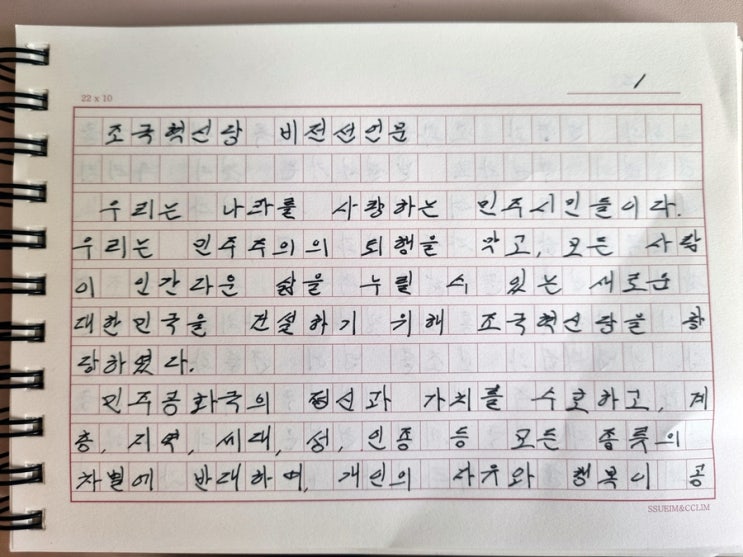 1
22 x 10
조국혁신당 비전선언문
우리는 나라를 사랑하는 민주시민들이다.
우리는 민주주의의 퇴행을 막고, 모든 사람
이 인간다운 삶을 누릴 수 있는 새로운
대한민국을 건설하기 위해 조국혁신당을 창
당하였다.
민주공화국의 정신과 가치를 수호하고, 계
층, 지역, 세대, 성, 인종 등 모든 종류의
차별에 반대하며, 개인의 자유와 행복이 공
SSUEIM&CCLIM